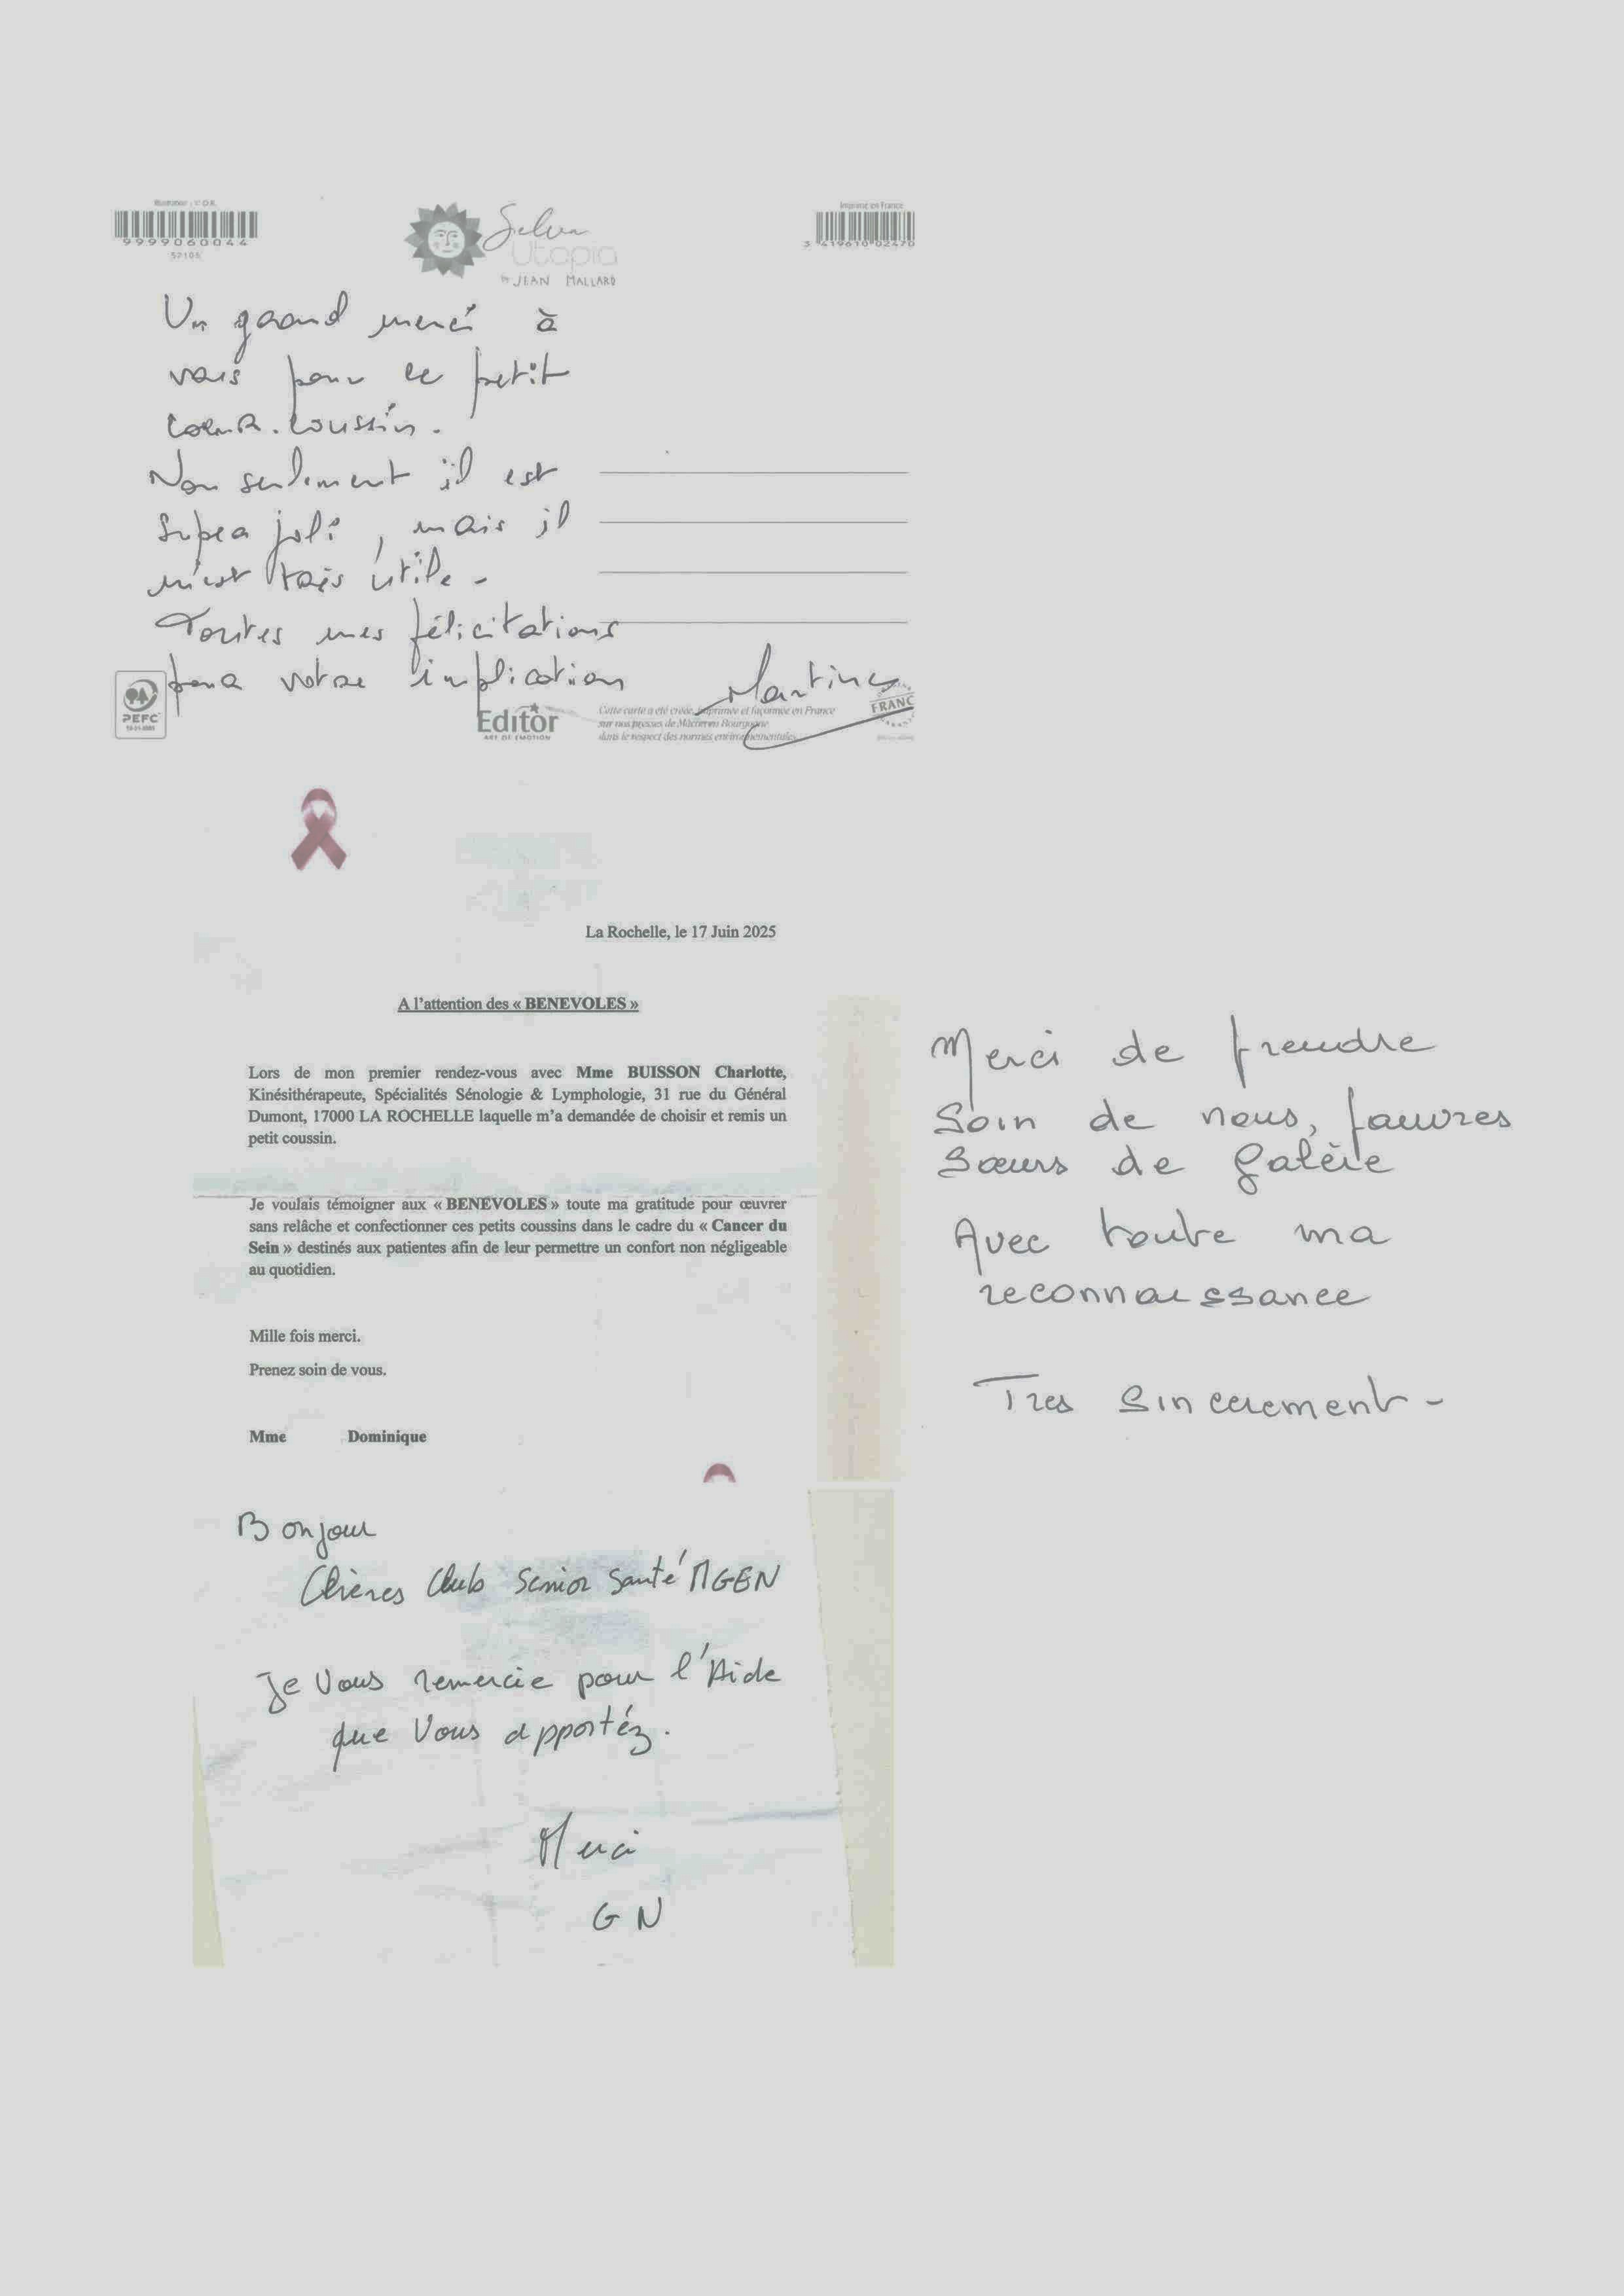 Illustration : V.O.K.
9999060044
52106
Selva
Utopia
by JEAN MALLARD
Imprimé en France
3 419610 02470
Un grand merci à
vous pour ce petit
coeur. coussin.
Non seulement il est
super joli, mais il
m'est très utile -
Toutes mes félicitations
pour votre implication
Martine
PEFC
Editor
ART OF EMOTION
Cette carte a été créée, imprimée et façonnée en France
sur nos presses de Mâcon en Bourgogne
dans le respect des normes environnementales.
FRANC
La Rochelle, le 17 Juin 2025
A l'attention des « BENEVOLES »
Lors de mon premier rendez-vous avec Mme BUISSON Charlotte,
Kinésithérapeute, Spécialités Sénologie & Lymphologie, 31 rue du Général
Dumont, 17000 LA ROCHELLE laquelle m'a demandée de choisir et remis un
petit coussin.
Je voulais témoigner aux « BENEVOLES » toute ma gratitude pour œuvrer
sans relâche et confectionner ces petits coussins dans le cadre du « Cancer du
Sein » destinés aux patientes afin de leur permettre un confort non négligeable
au quotidien.
Mille fois merci.
Prenez soin de vous.
Mme Dominique
Merci de prendre
Soin de nous, pauvres
Sœurs de galère
Avec toute ma
reconnaissance
Tres Sincerement -
Bonjour
Chères Club Senior Santé MGEN
Je Vous remercie pour l'Aide
que Vous apportéz.
Merci
G N